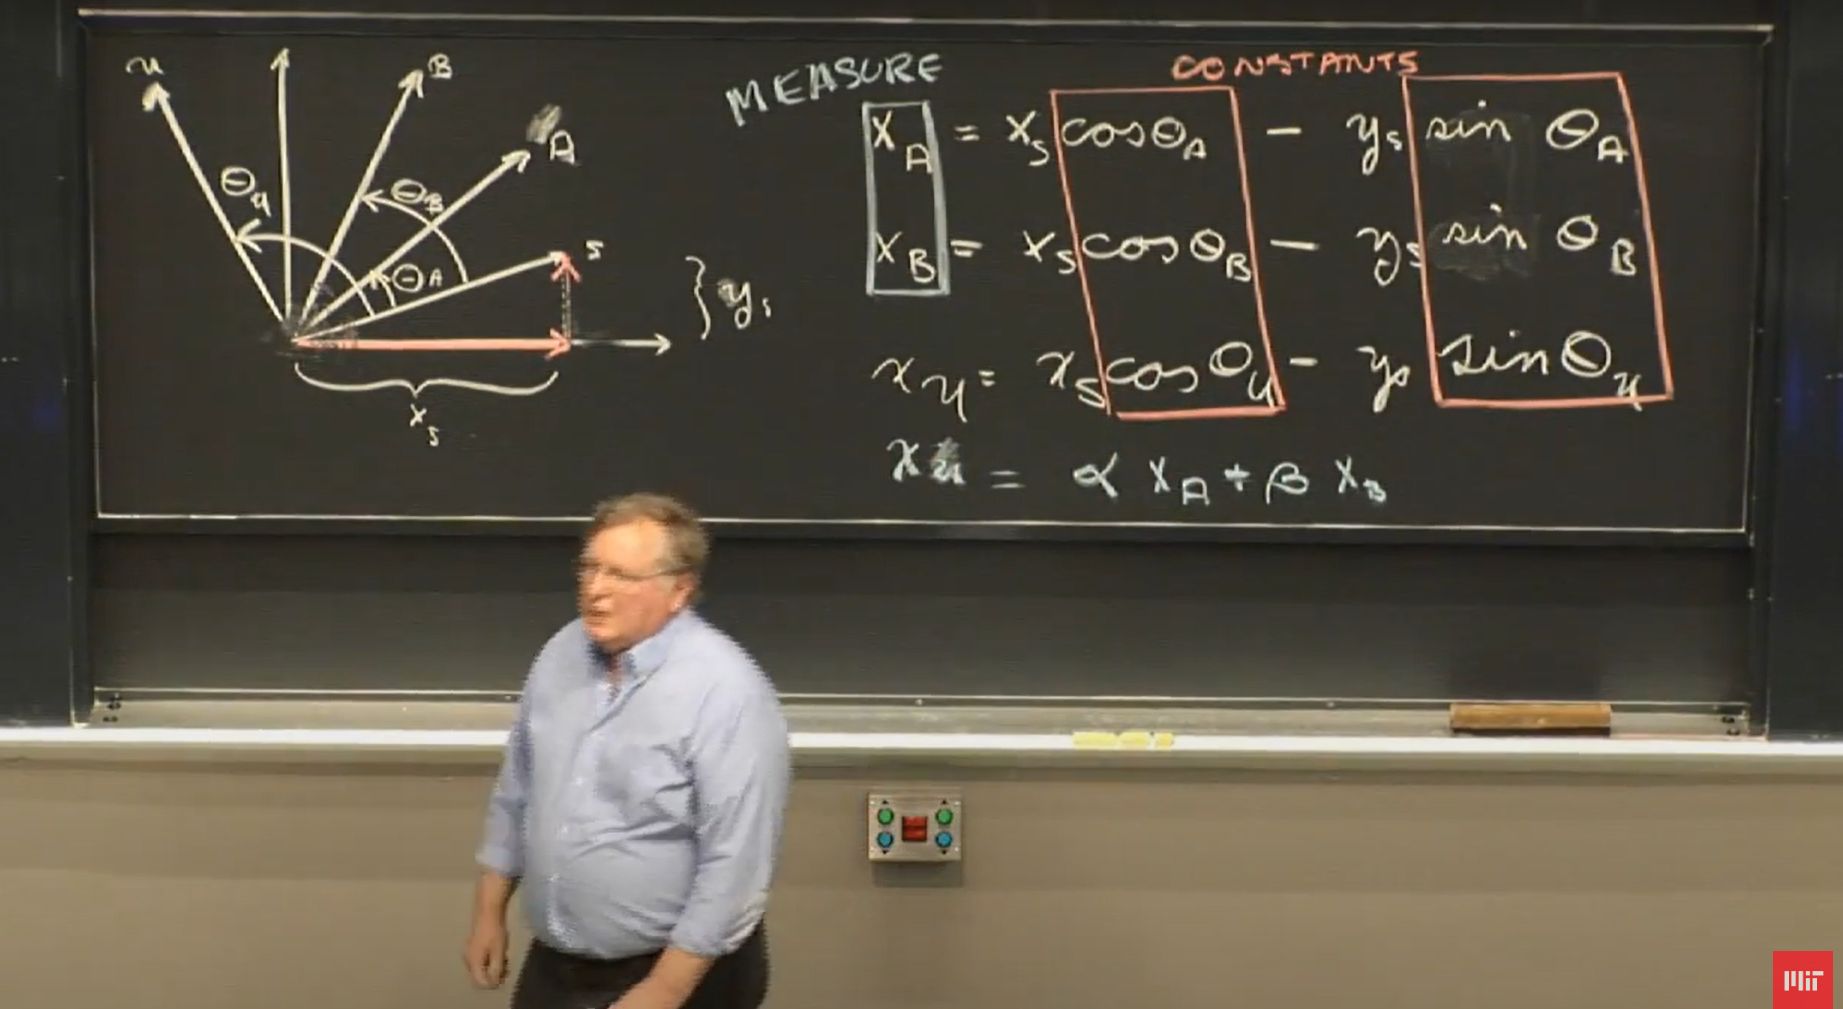 u
B
A
θu
θB
θA
s
} ys
xs
MEASURE
CONSTANTS
xA = xs cosθA − ys sin θA
xB = xs cosθB − ys sin θB
xu = xs cosθu − ys sinθu
xu = α xA + β xB
MIT